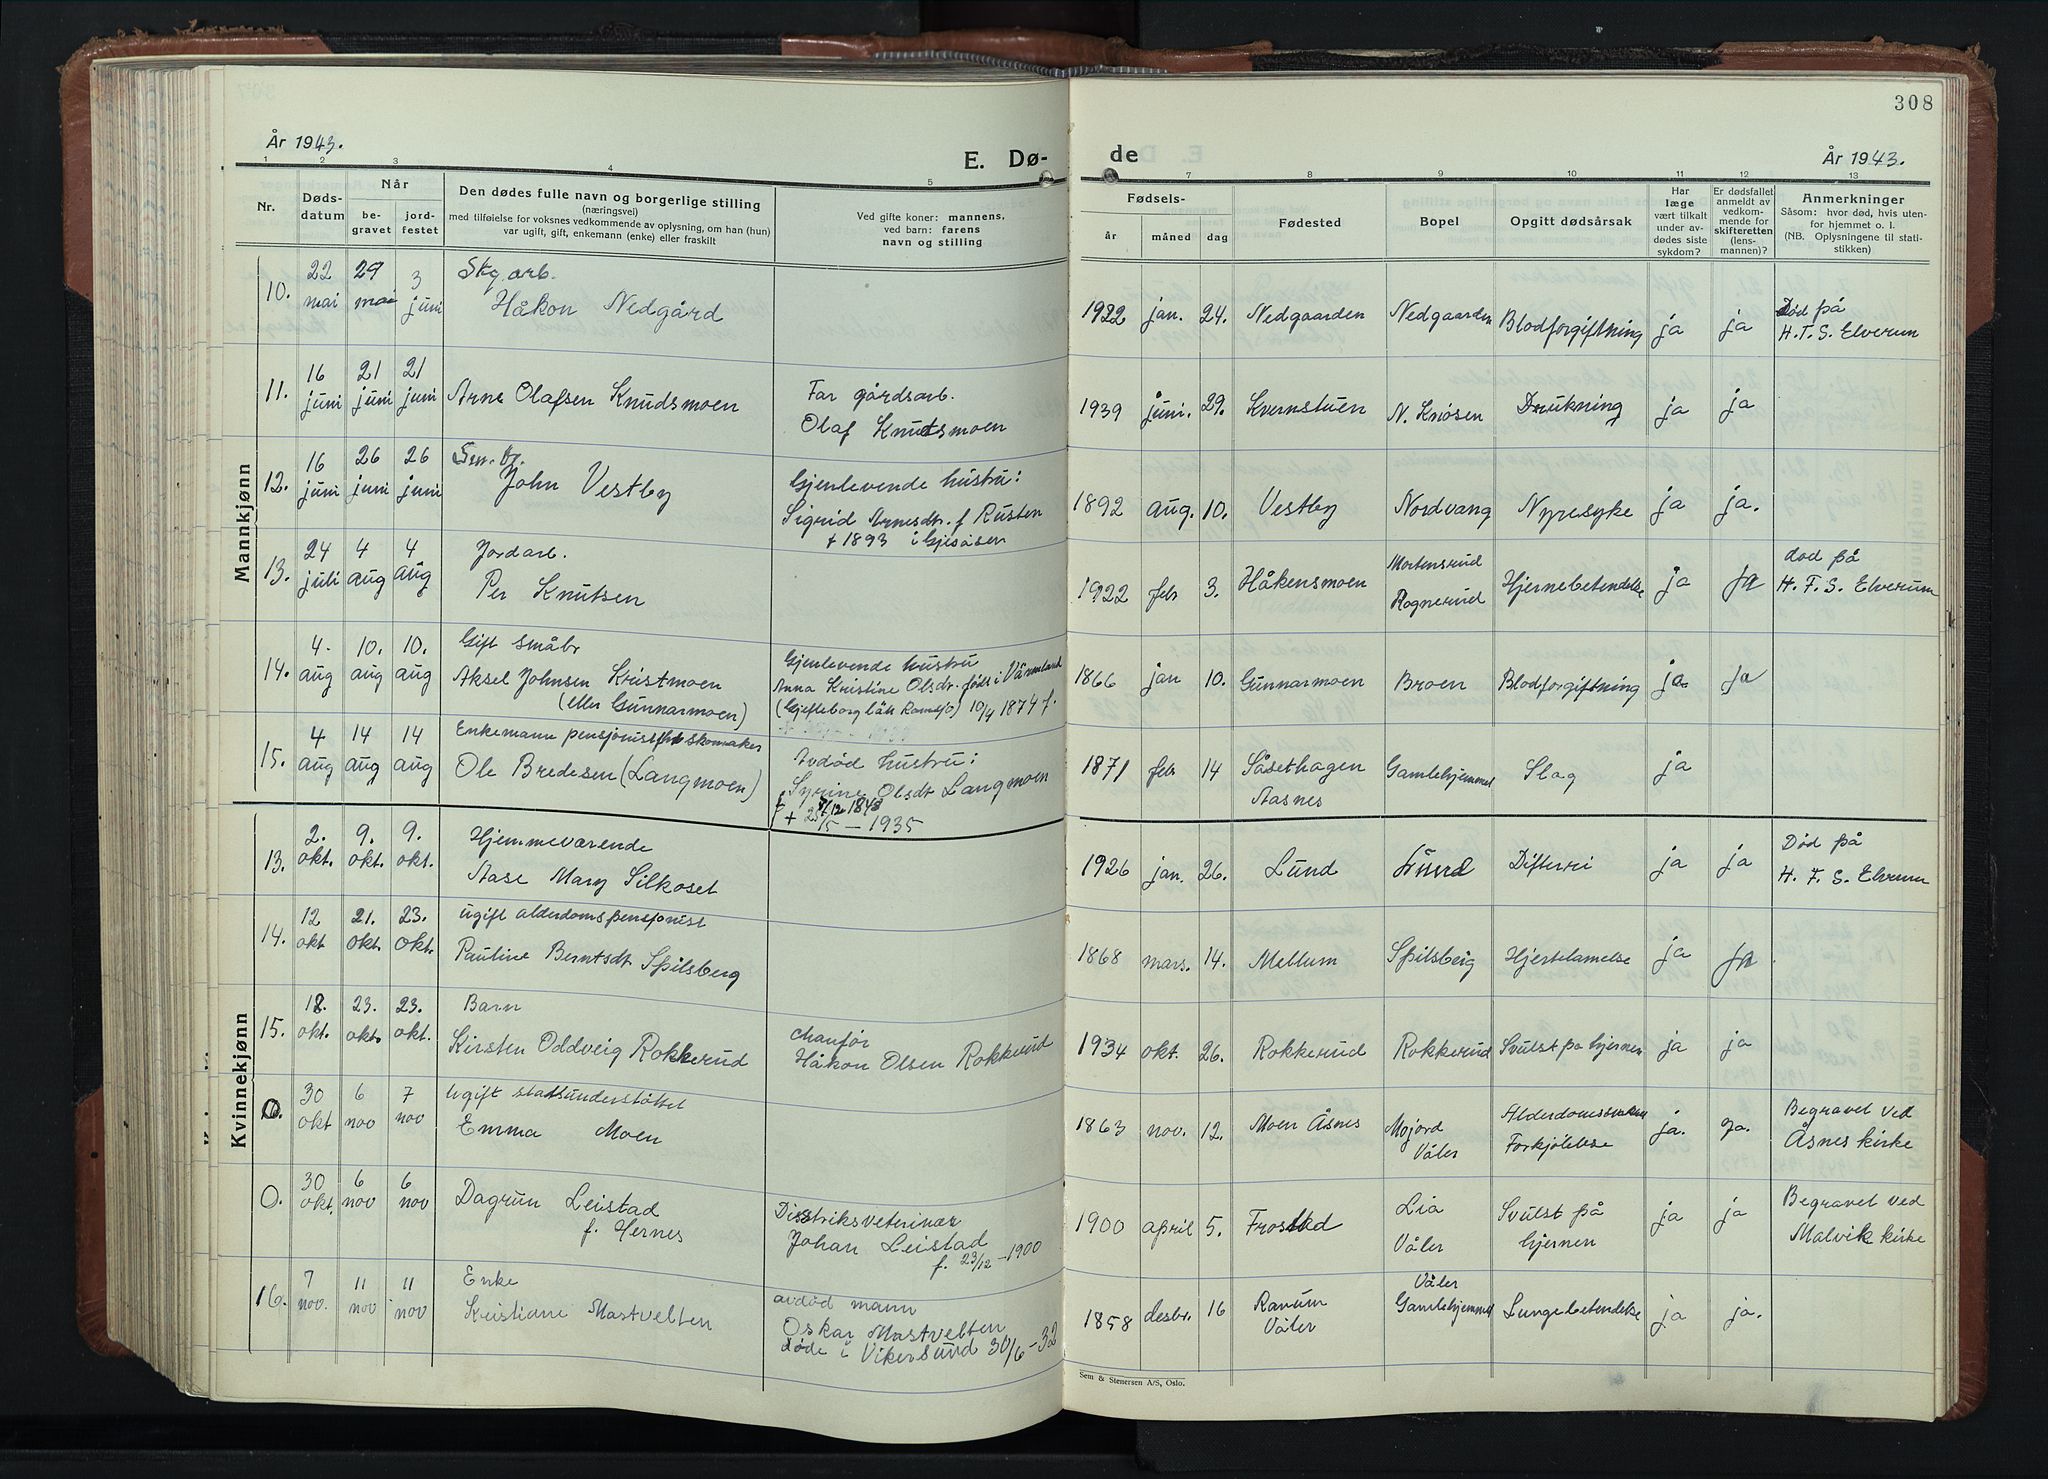 308
År 1943.
E. Dø-
de
År 1943.
1 2 3 4 5 7 8 9 10 11 12 13
Nr.
Døds-
datum
Når
be-
gravet
jord-
festet
Den dødes fulle navn og borgerlige stilling
(næringsvei)
med tilføielse for voksnes vedkommende av oplysning, om han (hun)
var ugift, gift, enkemann (enke) eller fraskilt
Ved gifte koner: mannens,
ved barn: farens
navn og stilling
Fødsels-
år måned dag
Fødested
Bopel
Opgitt dødsårsak
Har
læge
vært tilkalt
under av-
dødes siste
sykdom?
Er dødsfallet
anmeldt av
vedkom-
mende for
skifteretten
(lens-
mannen)?
Anmerkninger
Såsom: hvor død, hvis uten-
for hjemmet o. l.
(NB. Oplysningene til stati-
stikken)
Mannkjønn
10. 22 mai 29 mai 3 juni
Skg. arb.
Håkon Nedgård
1922 jan. 24. Nedgaarden Nedgaarden Blodforgiftning ja ja
Død på
H.F.S. Elverum
11. 16 juni 21 juni 21 juni
Arne Olafsen Knudsmoen
Far gårdsarb.
Olaf Knudsmoen
1939 juni. 29. Kvernstuen N. Kriosen Drukning ja ja
12. 16 juni 26 juni 26 juni
Sm. br.
John Vestby
Gjenlevende hustru:
Sigrid Arnesdt. f Rusten
+ 1893 i Gjesåsen
1892 aug. 10. Vestby Nordvang Nyresyke ja ja.
13. 24 juli 4 aug 4 aug
Jordarb.
Per Knutsen
1922 feb 3. Håkensmoen
Mortensrud
Rognerud
Hjernebetendelse ja ja
død på
H.F.S. Elverum
14. 4. aug 10. aug 10. aug
Gift småbr
Aksel Johnsen Kristmoen
(eller Gunnarmoen)
Gjenlevende hustru
Anna Kristine Olsdr. født i Värmland
10/4 1874 f.
1866 jan 10. Gunnarmoen Broen Blodforgiftning ja. ja
15. 4 aug 14 aug 14 aug
Enkemann pensjonist skomaker
Ole Bredesen (Langmoen)
Avdød hustru:
Syrine Olsdt Langmoen
1871 feb 14
Såsethagen
Aasnes
Gamlehjemmet Slag ja
Kvinnekjønn
13. 2. okt. 9. okt. 9. okt.
Hjemmeværende
Aase Mary Silkoset
1926 jan. 26. Lund Lund Difteri ja ja
Død på
H.F.S. Elverum
14. 12 okt 21. okt. 23. okt.
ugift alderdomspensjonist
Pauline Berntsdt Spilsberg
1868 mars. 14. Mellum Spilsberg Hjertelamelse ja ja
15. 18. okt. 23. okt. 23. okt.
Barn
Kirsten Oddveig Rokkerud
chauför
Håkon Olsen Rokkerud
1934 okt. 26. Rokkerud Rokkerud Svulst på hjernen ja ja
0. 30 okt 6 nov 7 nov
Ugift statsunderstöttet
Emma Moen
1863 nov. 12. Moen Åsnes
Mojord
Våler
Alderdomssvekkelse
Forkjølelse
ja. ja.
Begravet ved
Åsnes kirke
0. 30 okt. 6 nov 6 nov
Dagrun Leistad
f. Hernes
Distriksveterinær
Johan Leistad
f. 23/12 – 1900
1900 april 5. Frostad
Lia
Våler
Svulst på
hjernen
ja ja
Begravet ved
Malvik kirke
16. 7 nov. 11 nov 11 nov
Enke
Kristiane Mastvelten
avdød mann
Oskar Mastvelten
døde i Vikersund 30/6 – 32
1858 desbr. 16
Ranum
Våler
Våler
Gamlehjemmet
Lungebetendelse ja ja.
Sem & Stenersen A/S, Oslo.